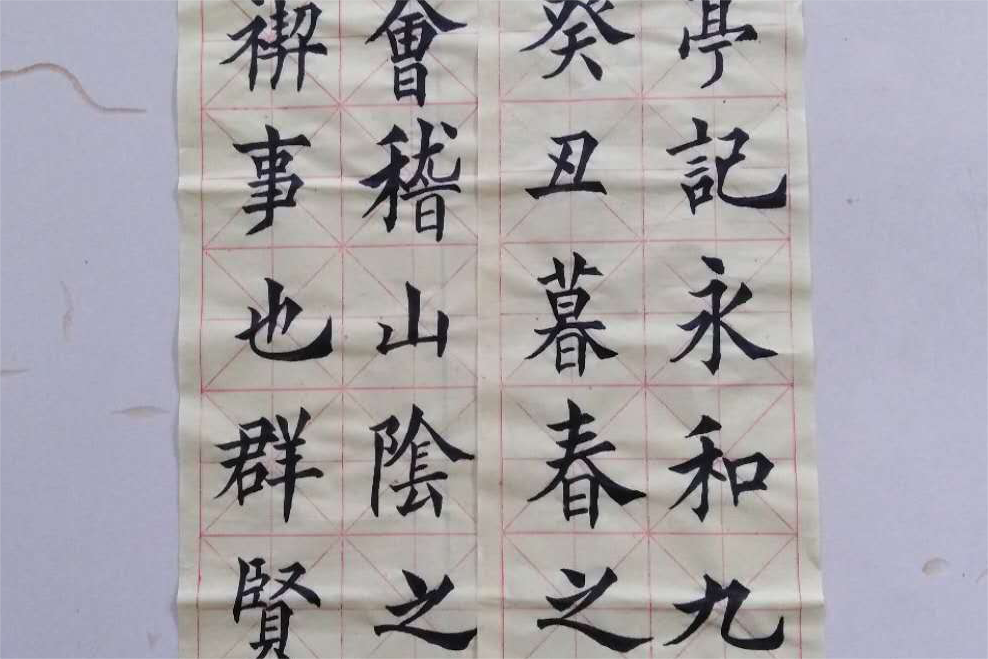 亭記永和九
癸丑暮春之
會稽山陰之
禊事也群賢